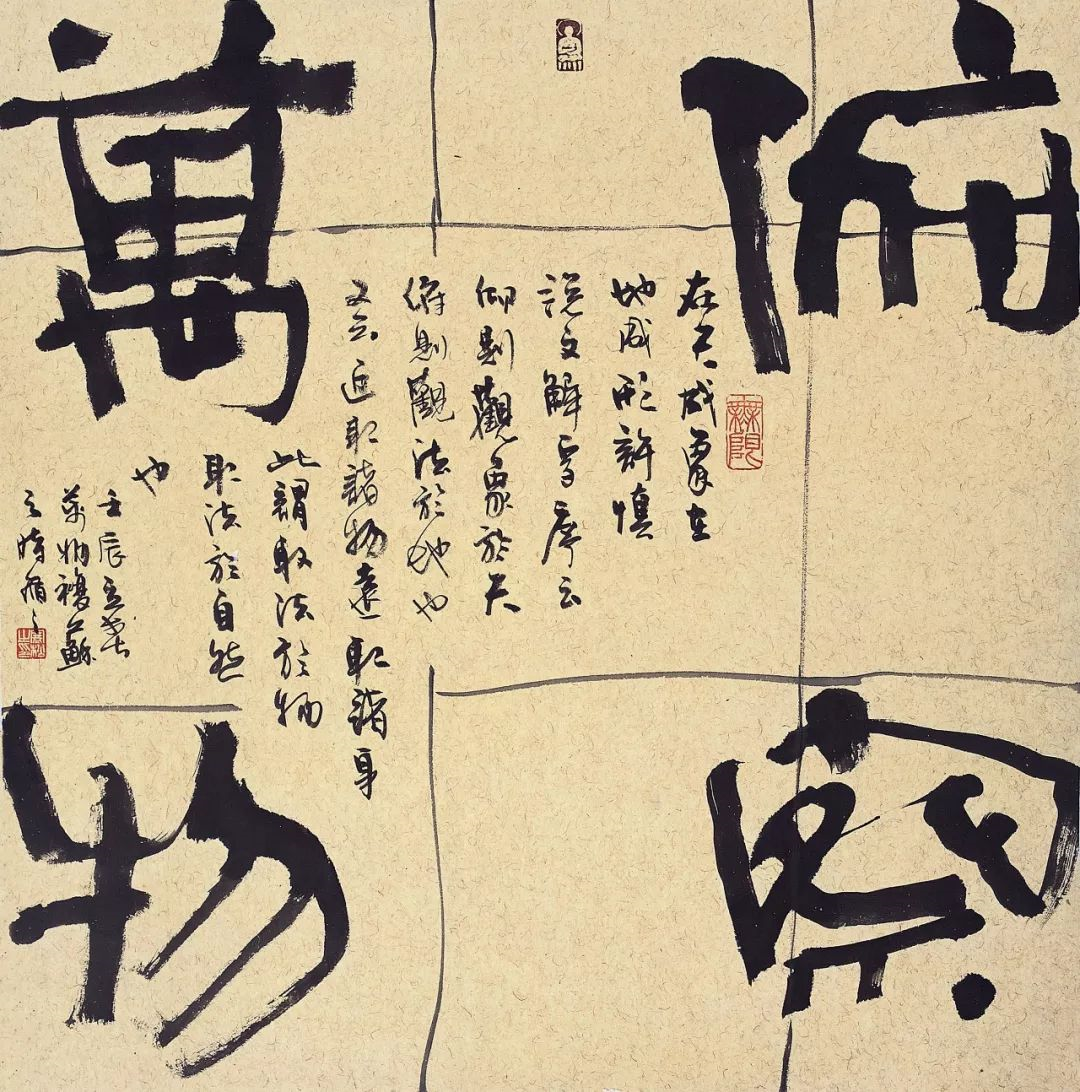 俯察
萬物
在天成象在
地成形許慎
說文解字序云
仰則觀象於天
俯則觀法於地也
又云近取諸物遠取諸身
此謂取法於物
取法於自然
也
壬辰立春
萬物複蘇
之時